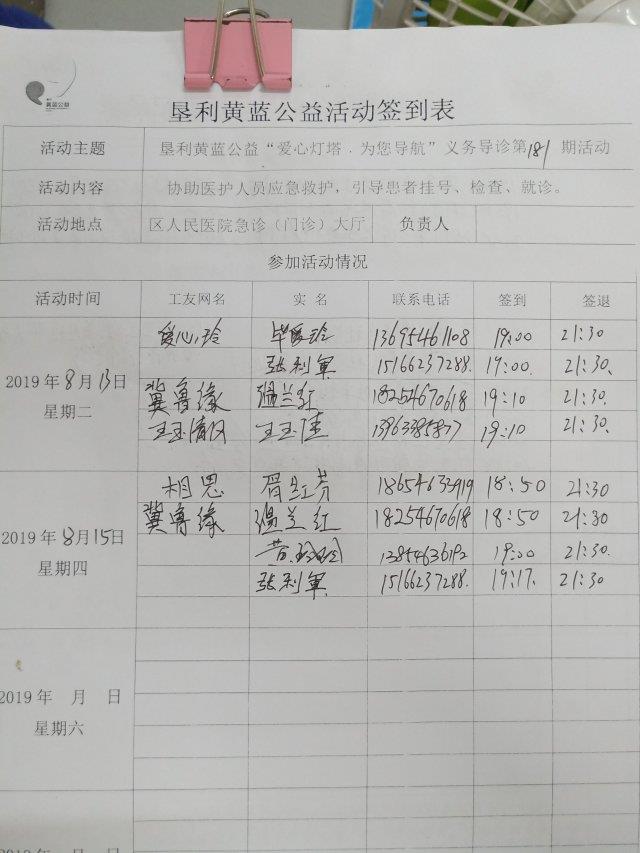 黄蓝公益
垦利黄蓝公益活动签到表
活动主题 垦利黄蓝公益“爱心灯塔．为您导航”义务导诊第181期活动
活动内容 协助医护人员应急救护，引导患者挂号、检查、就诊。
活动地点 区人民医院急诊（门诊）大厅 负责人
参加活动情况
活动时间 工友网名 实 名 联系电话 签到 签退
爱心玲 13695461108 19:00 21:30
张利军 15166237288. 19:00. 21:30.
2019年8月13日
冀鲁缘 温兰红 18254670618 19:10 21:30.
星期二
王玉 13963385877 19:10 21:30.
相思 胥红芳 18654633919 18:50 21:30
冀鲁缘 温兰红 18254670618 18:50 21:30
2019年8月15日
黄 13854636192 19:00 21:30.
星期四
张利军 15166237288. 19:17. 21:30
2019年 月 日
星期六
2019年 月 日